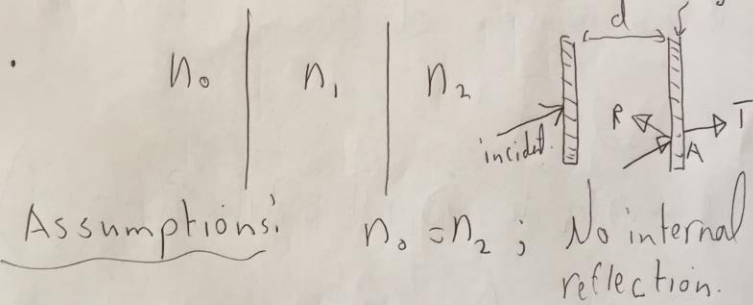 n₀ n₁ n₂
d
incident.
R
T
A
Assumptions: n₀ = n₂ ; No internal
reflection.